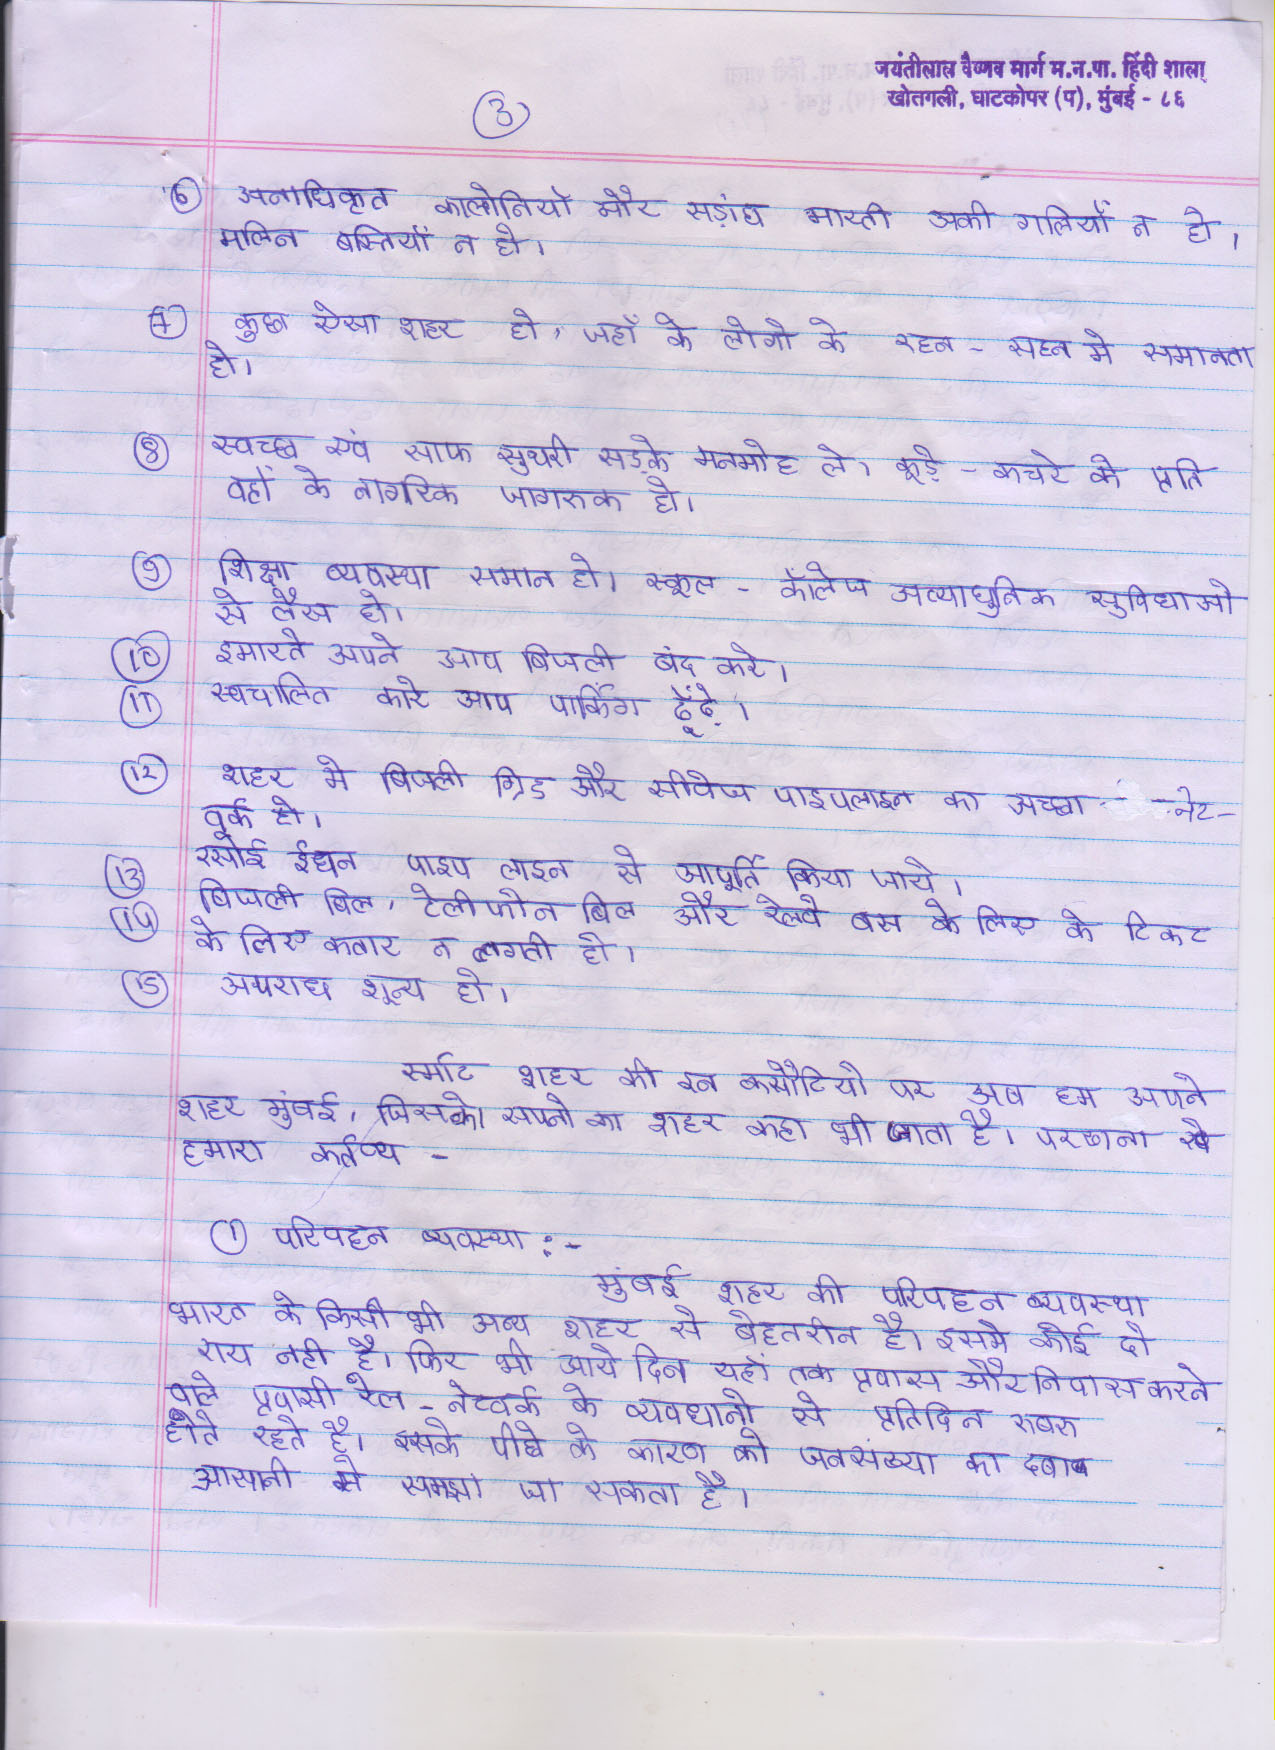 जयंतीलाल वैष्णव मार्ग म.न.पा. हिंदी शाला
खोतगली, घाटकोपर (प), मुंबई - ८६
3
6 अनाधिकृत कालोनियों और सड़ांध मारती गलियाँ न हो ।
मलिन बस्तियाँ न हो ।
7 कुछ ऐसा शहर हो, जहाँ के लोगो के रहन - सहन मे समानता
हो ।
8 स्वच्छ एवं साफ सुथरी सड़के मनमोह ले । कूड़े - कचरे के प्रति
वहाँ के नागरिक जागरुक हो ।
9 शिक्षा व्यवस्था समान हो । स्कूल - कॉलेज अत्याधुनिक सुविधाओ
से लैस हो ।
10 इमारते अपने आप बिजली बंद करे ।
11 स्वचालित कारे आप पार्किंग ढूँढ़े ।
12 शहर मे बिजली ग्रिड और सीवेज पाइपलाइन का अच्छा - - नेट -
वूर्क हो ।
13 रसोई ईंधन पाइप लाइन से आपूर्ति किया जाये ।
14 बिजली बिल, टेलीफोन बिल और रेलवे बस के लिए के टिकट
के लिए कतार न लगती हो ।
15 अपराध शून्य हो ।
स्मार्ट शहर की इन कसौटियो पर अब हम अपने
शहर मुंबई, जिसको सपनो का शहर कहा भी जाता है । परखना
हमारा कर्तव्य -
1 परिवहन व्यवस्था : -
मुंबई शहर की परिवहन व्यवस्था
भारत के किसी भी अन्य शहर से बेहतरीन है । इसमे कोई दो
राय नही है । फिर भी आये दिन यहाँ तक प्रवास और निवास करने
वाले प्रवासी रेल - नेटवर्क के व्यवधानो से प्रतिदिन रुबरु
होते रहते है । इसके पीछे के कारण को जनसंख्या का दबाव
आसानी से समझा जा सकता है ।